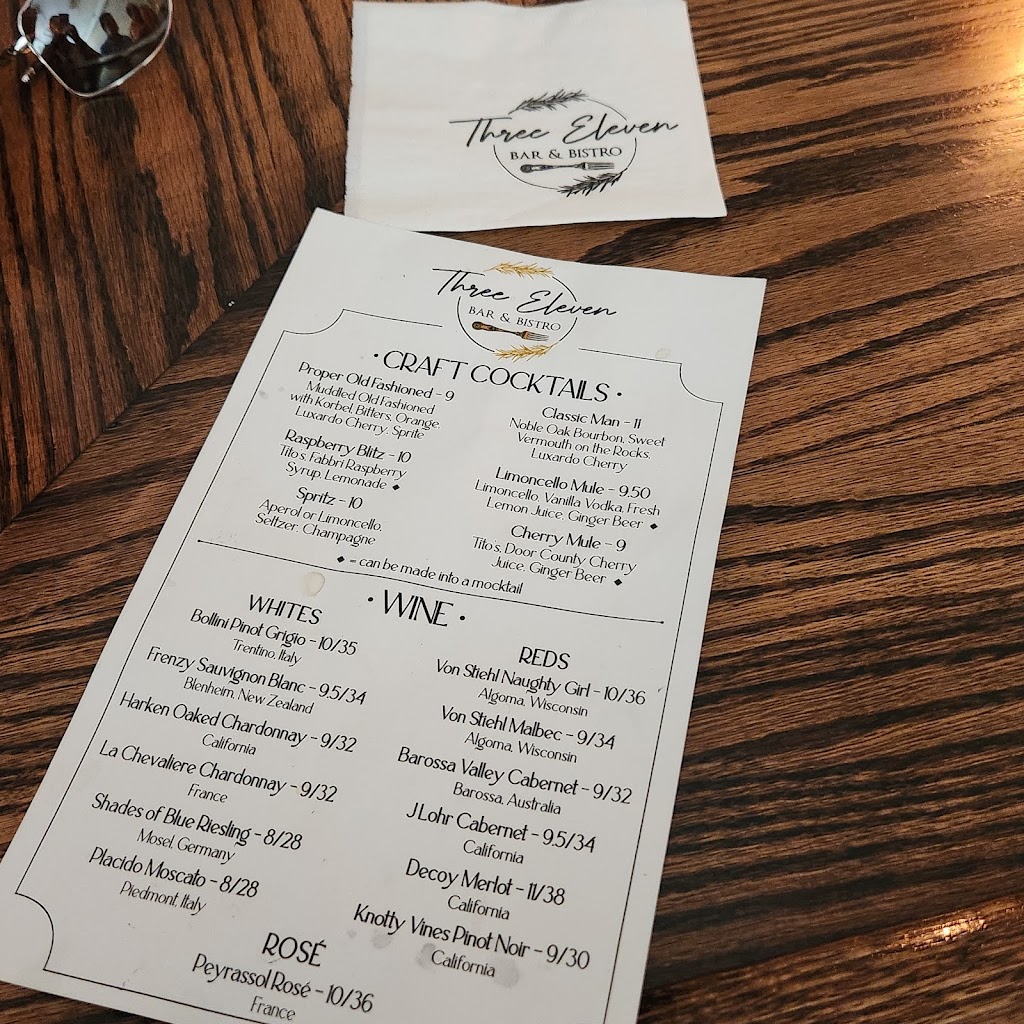 Three Eleven
BAR & BISTRO
Three Eleven
BAR & BISTRO
• CRAFT COCKTAILS •
Proper Old Fashioned - 9
Muddled Old Fashioned
with Korbel, Bitters, Orange
Luxardo Cherry, Sprite
Raspberry Blitz - 10
Tito's, Fabbri Raspberry
Syrup, Lemonade ◆
Spritz - 10
Aperol or Limoncello,
Seltzer, Champagne
Classic Man - 11
Noble Oak Bourbon, Sweet
Vermouth on the Rocks,
Luxardo Cherry
Limoncello Mule - 9.50
Limoncello, Vanilla Vodka, Fresh
Lemon Juice, Ginger Beer ◆
Cherry Mule - 9
Tito's, Door County Cherry
Juice, Ginger Beer ◆
◆ = can be made into a mocktail
• WINE •
WHITES
Bollini Pinot Grigio - 10/35
Trentino, Italy
Frenzy Sauvignon Blanc - 9.5/34
Blenheim, New Zealand
Harken Oaked Chardonnay - 9/32
California
La Chevaliere Chardonnay - 9/32
France
Shades of Blue Riesling - 8/28
Mosel, Germany
Placido Moscato - 8/28
Piedmont, Italy
REDS
Von Stiehl Naughty Girl - 10/36
Algoma, Wisconsin
Von Stiehl Malbec - 9/34
Algoma, Wisconsin
Barossa Valley Cabernet - 9/32
Barossa, Australia
J Lohr Cabernet - 9.5/34
California
Decoy Merlot - 11/38
California
Knotty Vines Pinot Noir - 9/30
California
ROSÉ
Peyrassol Rosé - 10/36
France